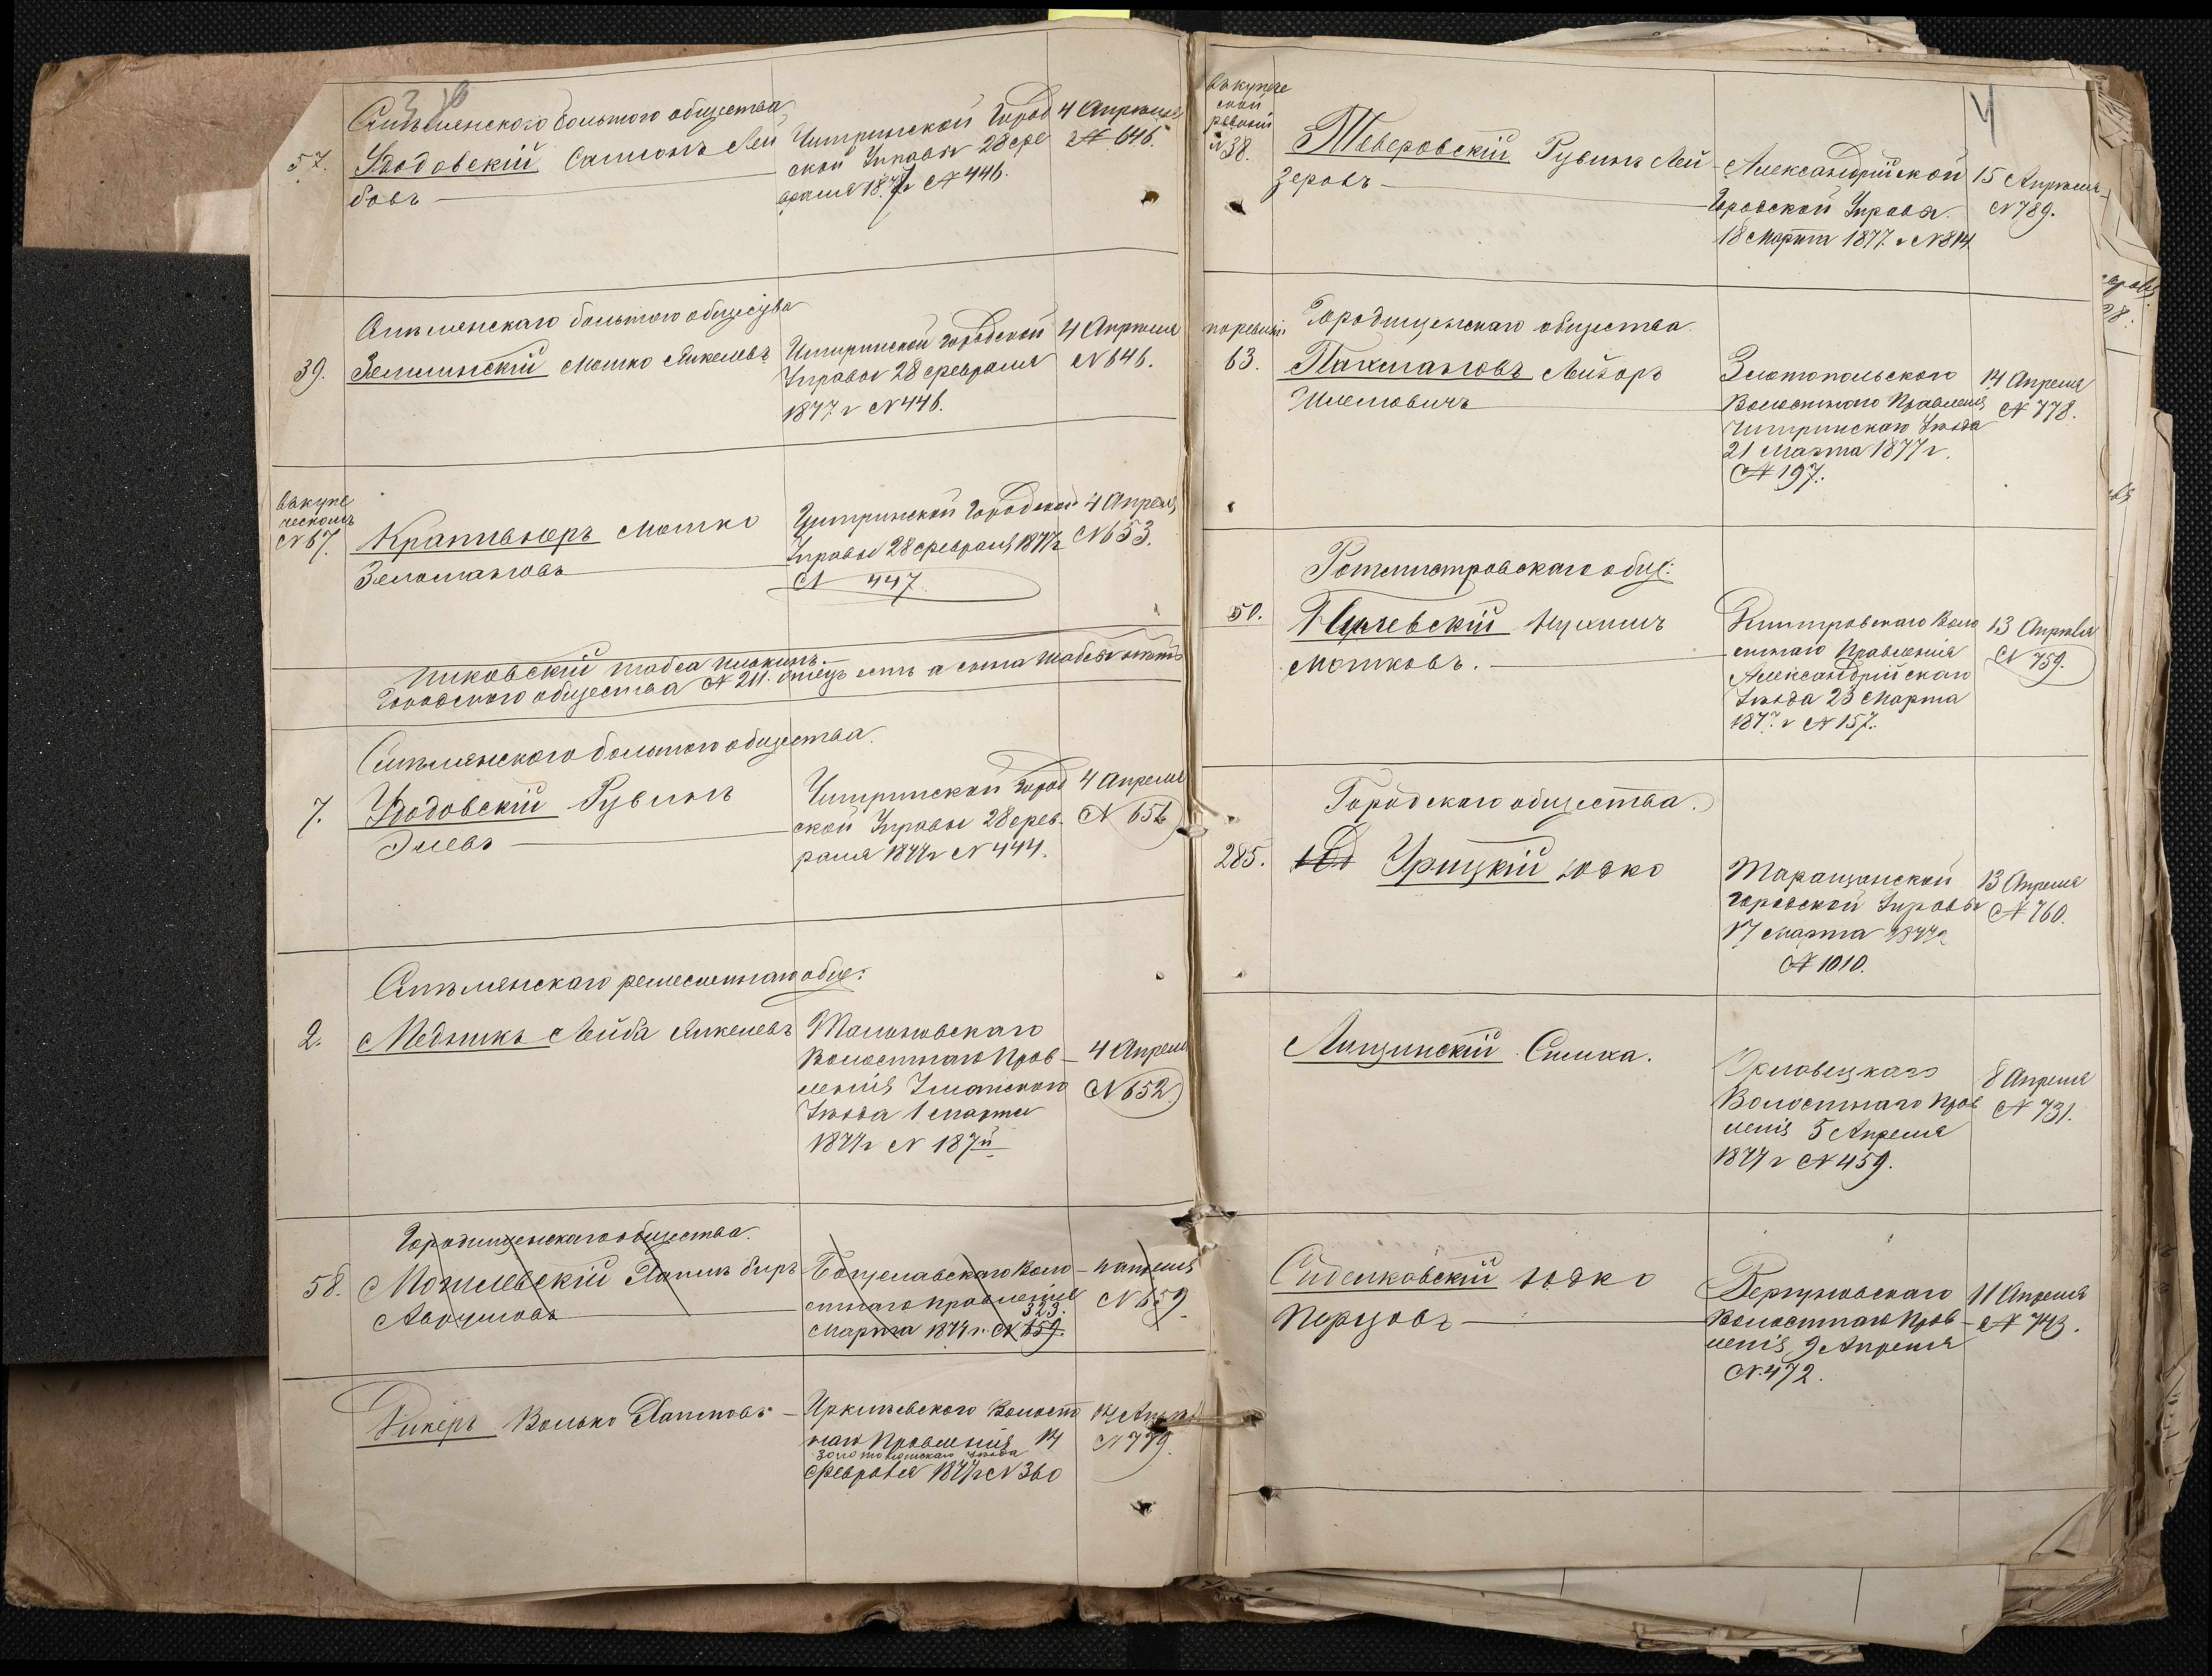 3
57.
Смѣлянского большого общества
Удодовскій Самсонъ Лей
бовъ
Чигринской Город
ской Управы 28 фе
враля 1877 г № 446.
4 Апреля
№ 646.
39.
Смѣлянскаго большого общества
Мошко Янкелевъ
Чигринской городской
Управы 28 февраля
1877 г № 446.
4 Апреля
№ 646.
въ купе
ческомъ
№ 67.
Мошко
Зельмановъ
Чигринской Городской
Управы 28 февраля 1877 г
№ 447.
4 Апреля
№ 653.
Городского общества № 211. отецъ есть а сына
7.
Смѣлянского большого общества.
Удодовскій Рувинъ
Элевъ
Чигринской город
ской Управы 28 фев-
раля 1877 г № 444.
4 Апреля
№ 656
2.
Смѣлянскаго ремесленнаго общ:
Медникъ Лейба Янкелевъ
Мальковскаго
Волостнаго Прав-
ленія Уманского
Уѣзда 1 марта
1877 г № 187й
4 Апреля
№ 652.
58.
Городищенскаго общества.
Могилевскій Хаимъ Беръ
Аврумовъ
Богуславскаго Воло-
стнаго правленія
323.
Марта 1877 г. № 659.
№ 659.
Волько Хаимовъ
Иркліевского Волост
наго Правленія 14
Золотоношскаго уѣзда
Февраля 1877 г № 360
14 Апреля
№ 779.
4
въ купече
ской
ревизіи
№ 38.
Тверовскій Рувинъ Лей-
зеровъ
Александрійской
Городской Управы.
18 Марта 1877 г № 814
15 Апреля
№ 789.
по ревизіи
63.
Городищенскаго общества.
Пахмановъ Лейзоръ
Шлемовичъ
Златопольского
Волостного Правленія
Чигринскаго Уѣзда
21 марта 1877 г.
№ 197.
14 Апреля
№ 778.
50.
Ротмистровскаго общ:
Нухимъ
Мошковъ.
Волостнаго Правленія
Александрійскаго
Уѣзда 23 Марта
1877 г № 157.
13 Апреля
№ 759.
285.
Городскаго общества.
Урицкій Іодко
Таращанской
Городской Управы
17 марта 1877 г
№ 1010.
13 Апреля
№ 760.
Лищинскій Симха.
Орловецкаго
Волостнаго Прав
ленія 5 Апреля
1877 г № 459.
8 Апреля
№ 731.
Сиделковскій Іодко
Перцовъ
Вергуновскаго
Волостнаго Прав-
ленія 9 Апреля
№ 472.
11 Апреля
№ 743.